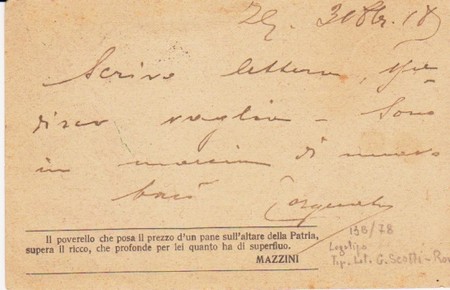 Scrivo lettera, spe
disco vaglia - Sono
in marcia di nuovo
baci
Il poverello che posa il prezzo d'un pane sull'altare della Patria,
supera il ricco, che profonde per lei quanto ha di superfluo.
MAZZINI
136/78
Logotipo
Tip. Lit. G. Scotti - Ro